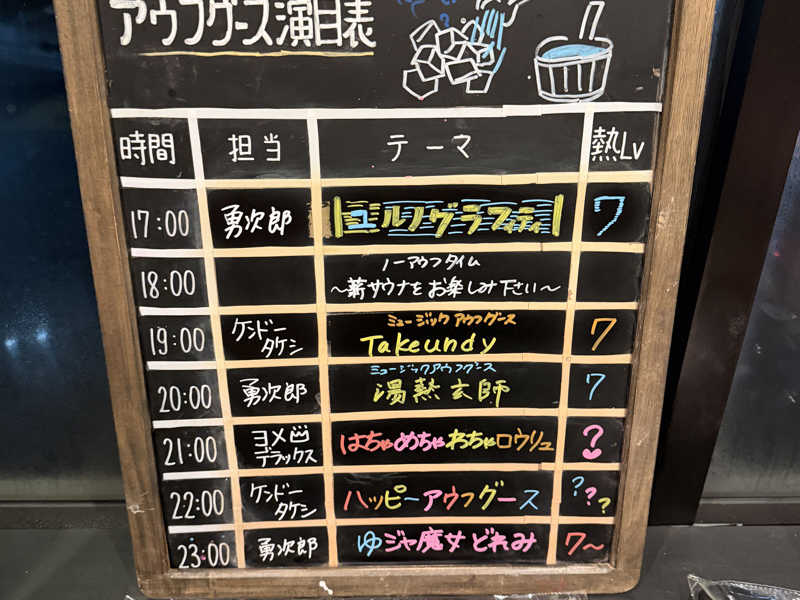 アウフグース演目表
時間 担当 テーマ 熱Lv
17:00 勇次郎 ユルノグラフィティ 7
18:00 ノーアウフタイム
～薪サウナをお楽しみ下さい～
19:00 ケンドータケシ ミュージックアウフグース
Takeundy 7
20:00 勇次郎 ミュージックアウフグース
湯熱玄師 7
21:00 ヨメ デラックス はちゃめちゃわちゃロウリュ ?
22:00 ケンドータケシ ハッピーアウフグース ???
23:00 勇次郎 ゆジャ魔女どれみ 7～